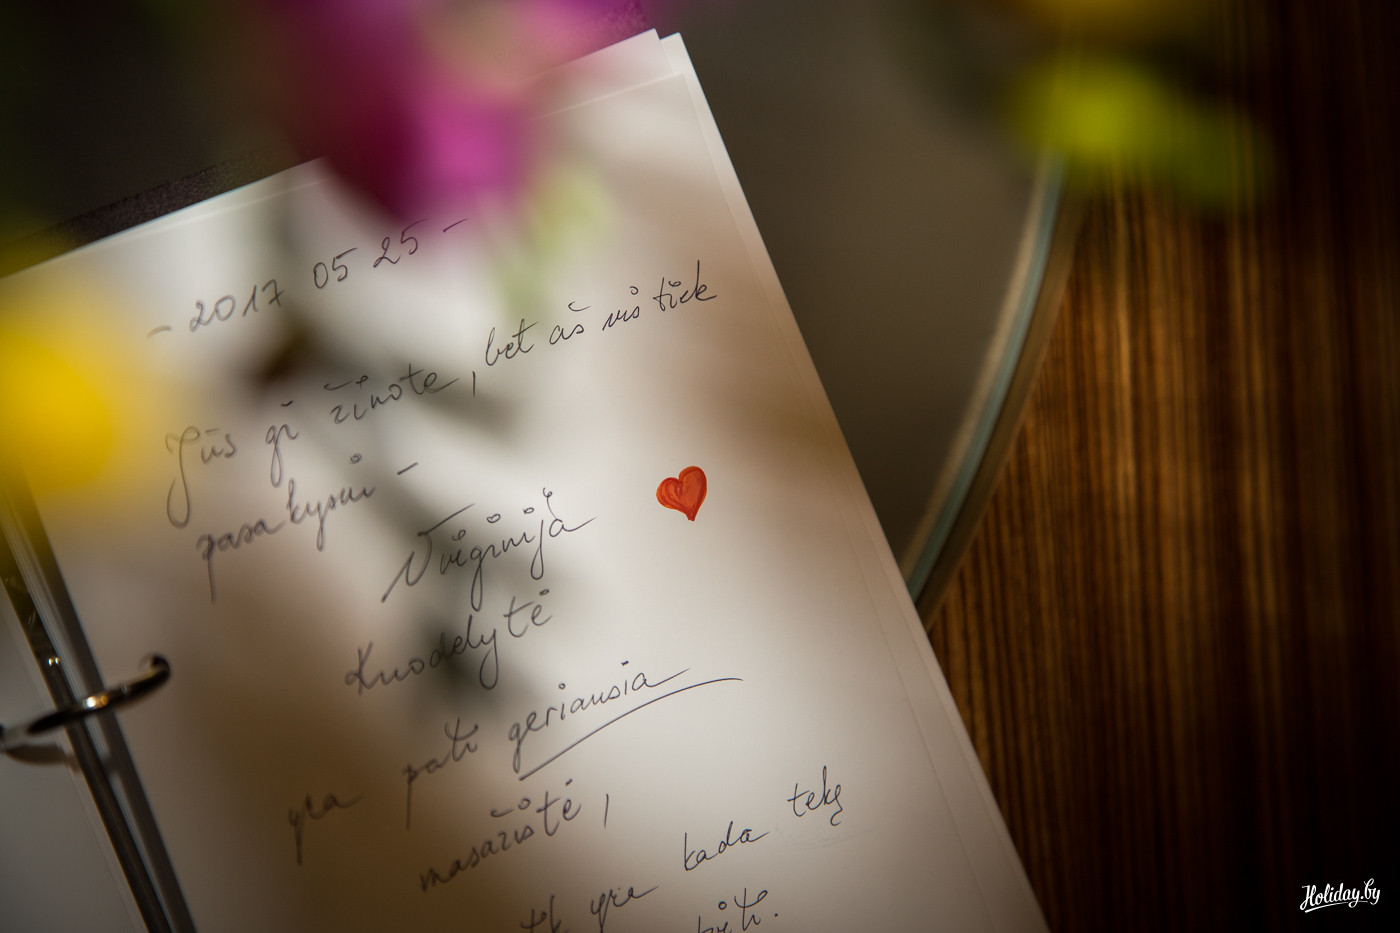 - 2017 05 25 -
Jūs gi žinote, bet aš vis tiek
pasakysiu -
Virginija
Knodelytė
yra pati geriausia
masažistė,
kada tekę
yra
Holiday.by